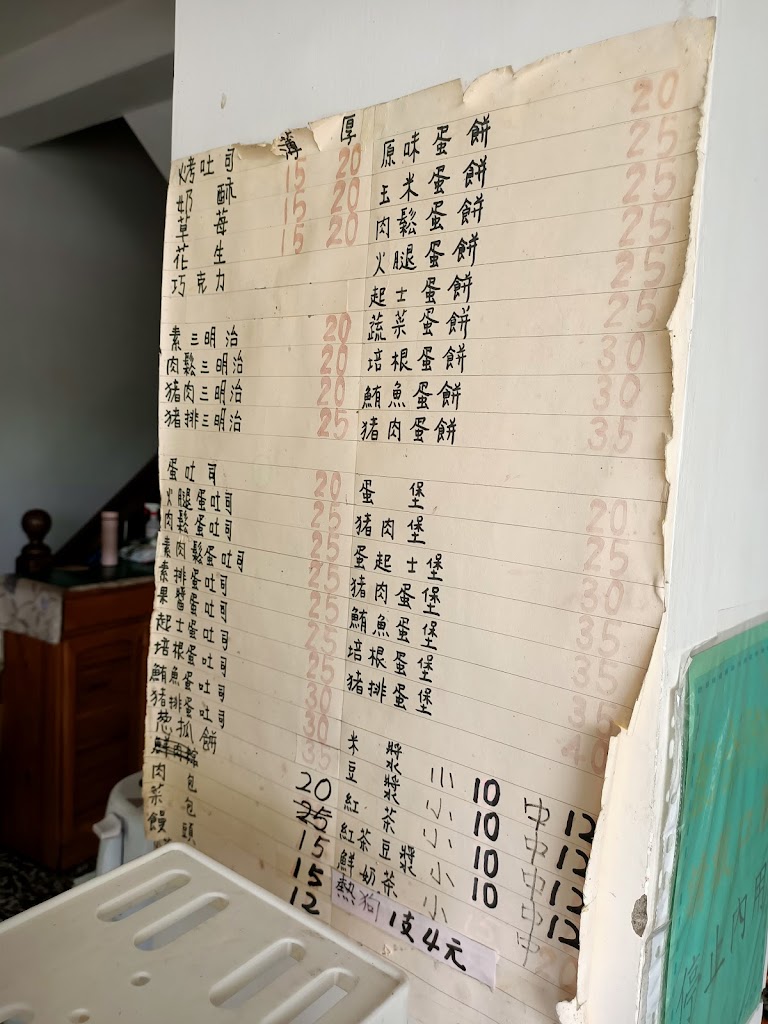 薄 厚
烤吐司 15 20
奶酥 15 20
草莓 15 20
花生
巧克力
素三明治 20
肉鬆三明治 20
豬肉三明治 20
豬排三明治 25
蛋吐司 20
火腿蛋吐司 25
肉鬆蛋吐司 25
素肉鬆蛋吐司 25
素排蛋吐司 25
果醬蛋吐司 25
起士蛋吐司 25
培根蛋吐司 30
鮪魚蛋吐司 30
豬排蛋吐司 35
葱抓餅 20
鮮肉粽 25
肉包 15
菜包 15
饅頭 12
原味蛋餅 20
玉米蛋餅 25
肉鬆蛋餅 25
火腿蛋餅 25
起士蛋餅 25
蔬菜蛋餅 25
培根蛋餅 30
鮪魚蛋餅 30
豬肉蛋餅 35
蛋堡 20
豬肉堡 25
蛋起士堡 30
豬肉蛋堡 35
鮪魚蛋堡 35
培根蛋堡 35
豬排蛋堡 40
米漿 小 10 中 12
豆漿 小 10 中 12
紅茶 小 10 中 12
紅茶豆漿 小 10 中 12
鮮奶茶 小 中 20
熱狗 1支4元
停止內用